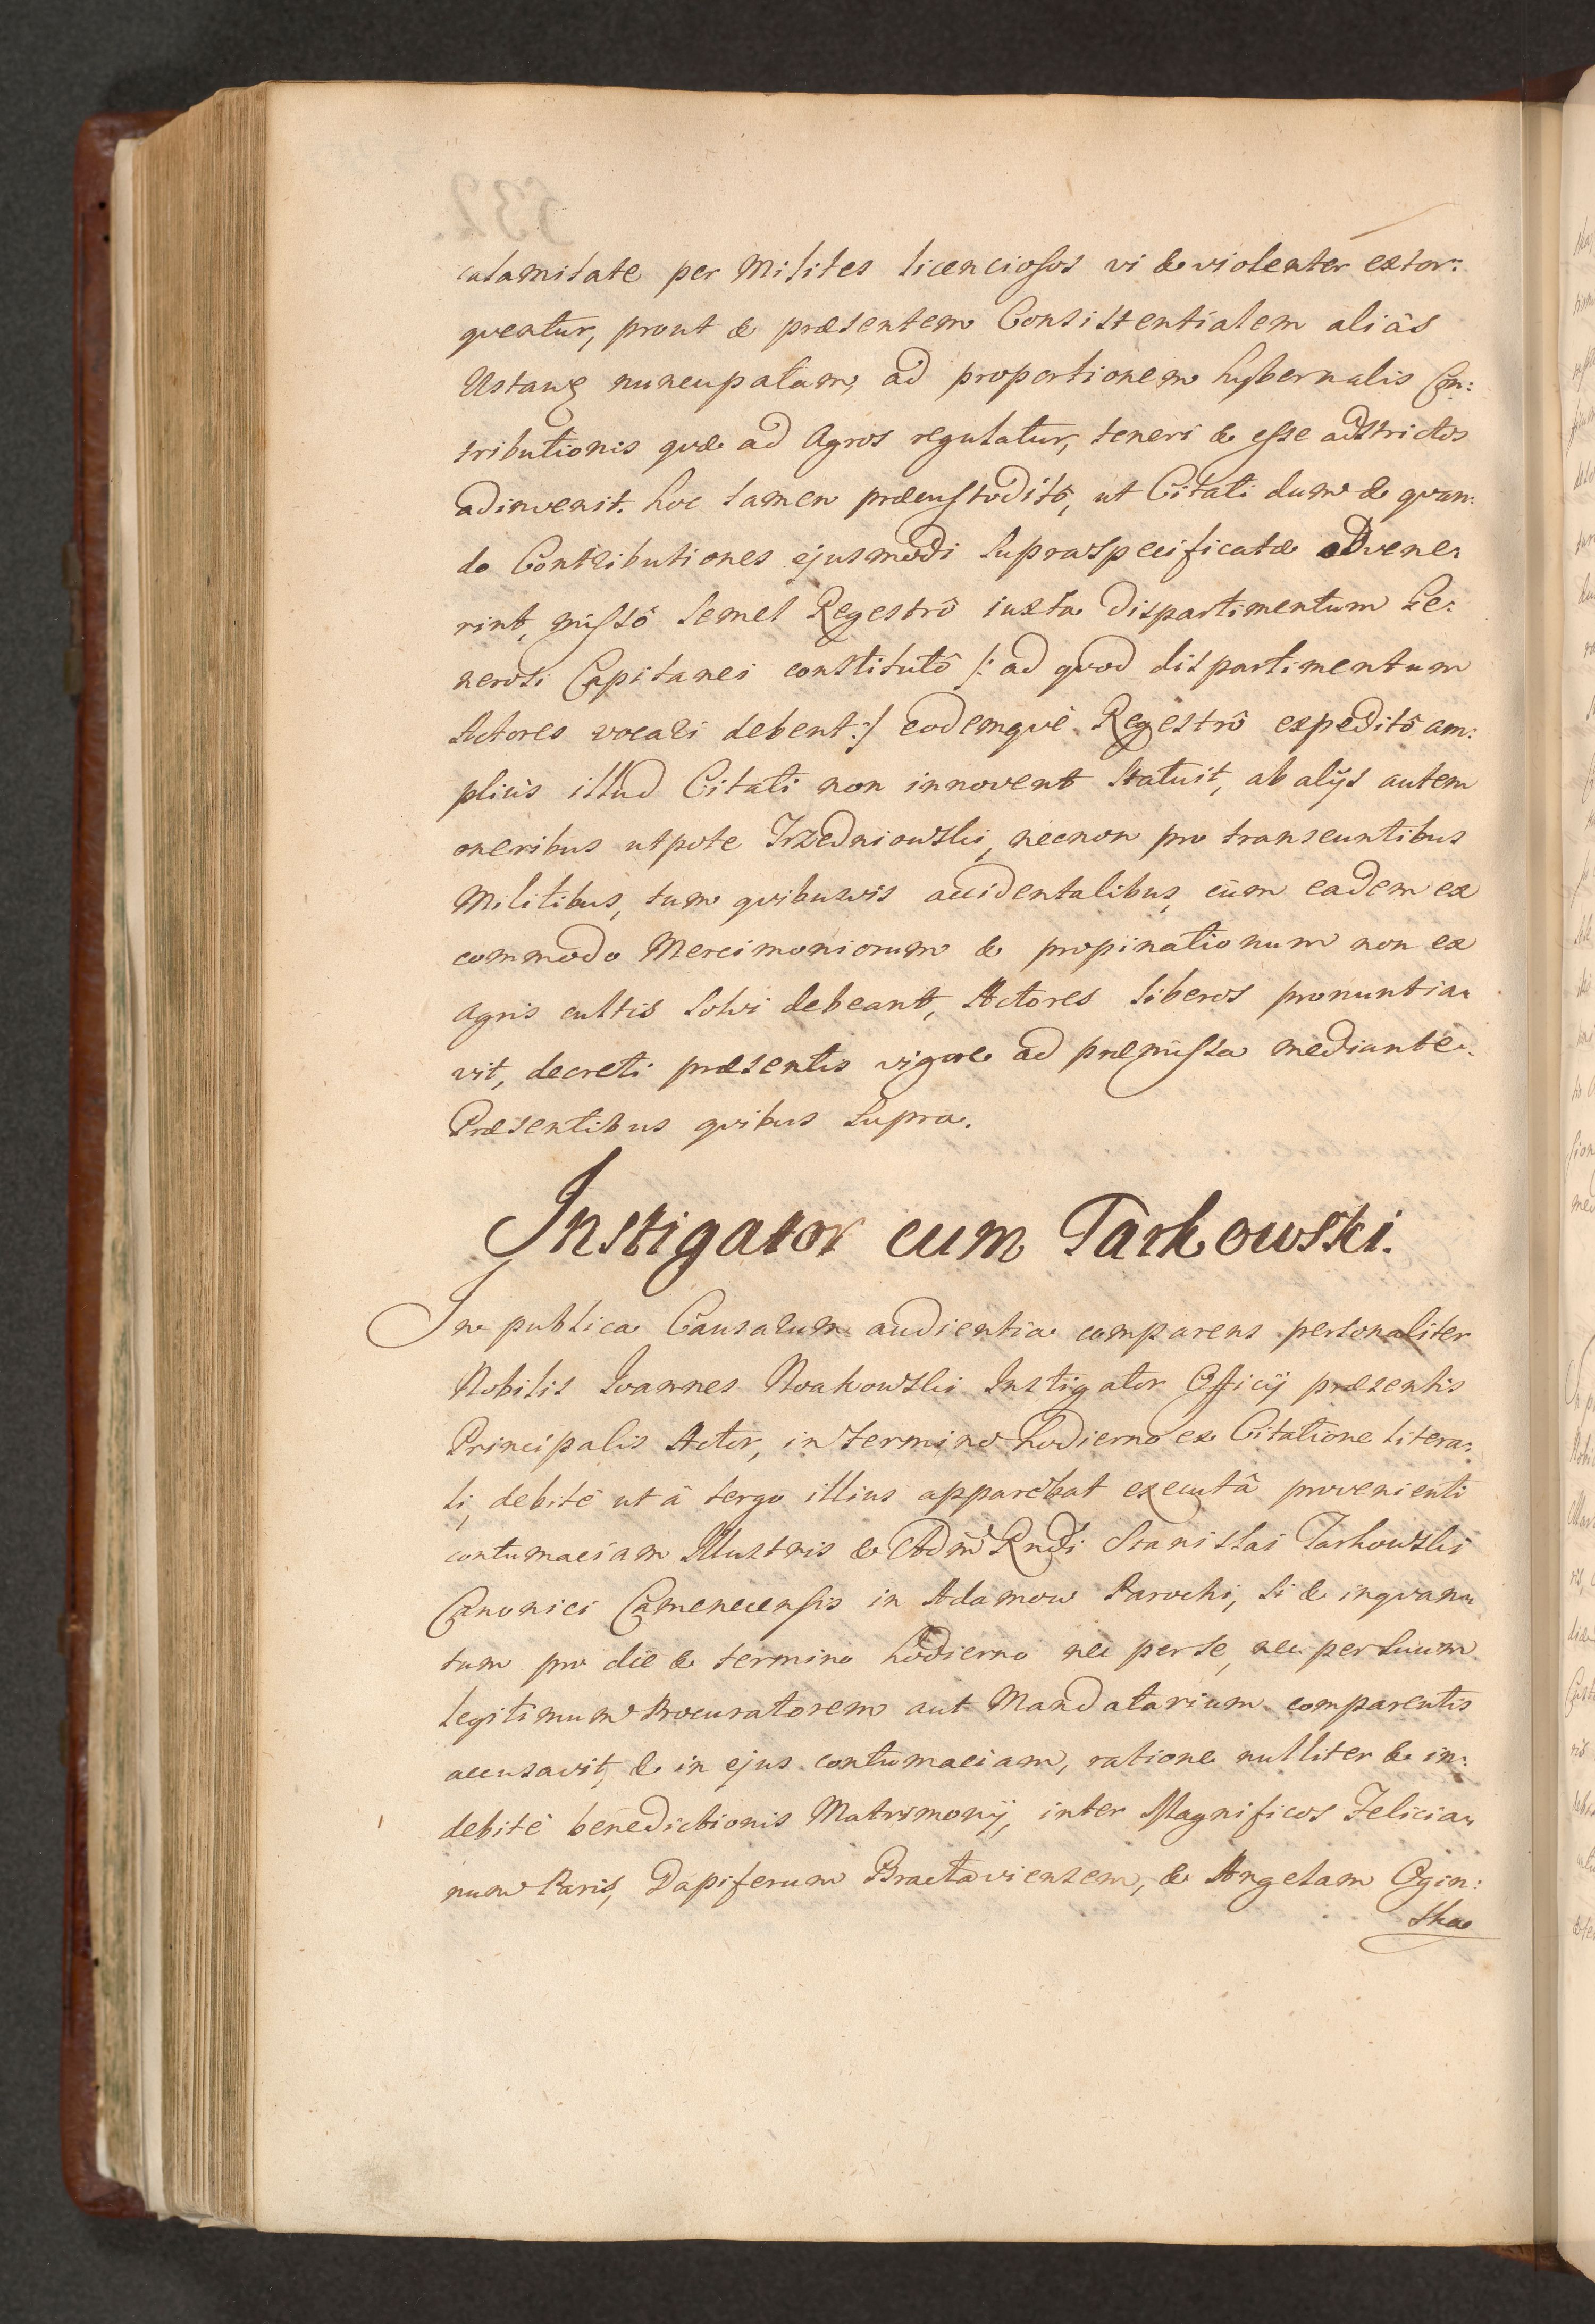 calamitate per Milites licenciosos vi & violenter extor:
qveatur, prout & præsentem Consistentialem aliàs
Ustawę nuncupatam, ad proportionem hybernalis Con:
tributionis qvæ ad Agros regulatur, teneri & esse adstrictos
adinvenit. hoc tamen præcustoditô, ut Citati dum & qvan:
do Contributiones ejusmodi supraspecificatæ advene:
rint, missô semel Regestrô iuxta dispartimentum Ge:
nerosi Capitanei constitutô /: ad qvod dispartimentum
Actores vocari debent :/ eodemqvè Regestrô expeditô am:
pliùs illud Citati non innovent statuit, ab alijs autem
oneribus utpote Trzedniowski, necnon pro transeuntibus
Militibus, tum qvibusvis accidentalibus, cùm eadem ex
commodo Mercimoniorum & propinationum non ex
agris cultis solvi debeant, Actores liberos pronuntia:
vit, decreti præsentis vigore ad præmissa mediante.
Præsentibus qvibus supra.
Instigator cum Tarkowski.
In publica Causarum audientia comparens personaliter
Nobilis Ioannes Noakowski Instigator Officij præsentis
Principalis Actor, in termino hodierno ex Citatione litera:
li, debitè ut à tergo illius apparebat executâ provenienti
contumaciam Illustris & Adm Rndi Stanislai Tarkowski
Canonici Camenecensis in Adamow Parochi, si & inqvan:
tum pro die & termino hodierno nec per se, nec per suum
legitimum Procuratorem aut Mandatarium comparentis
accusavit, & in ejus contumaciam, ratione nulliter & in:
debitè benedictionis Matrimonij, inter Magnificos Felicia:
num Paris, Dapiferum Braclaviensem, & Angelam Ogin:
ska